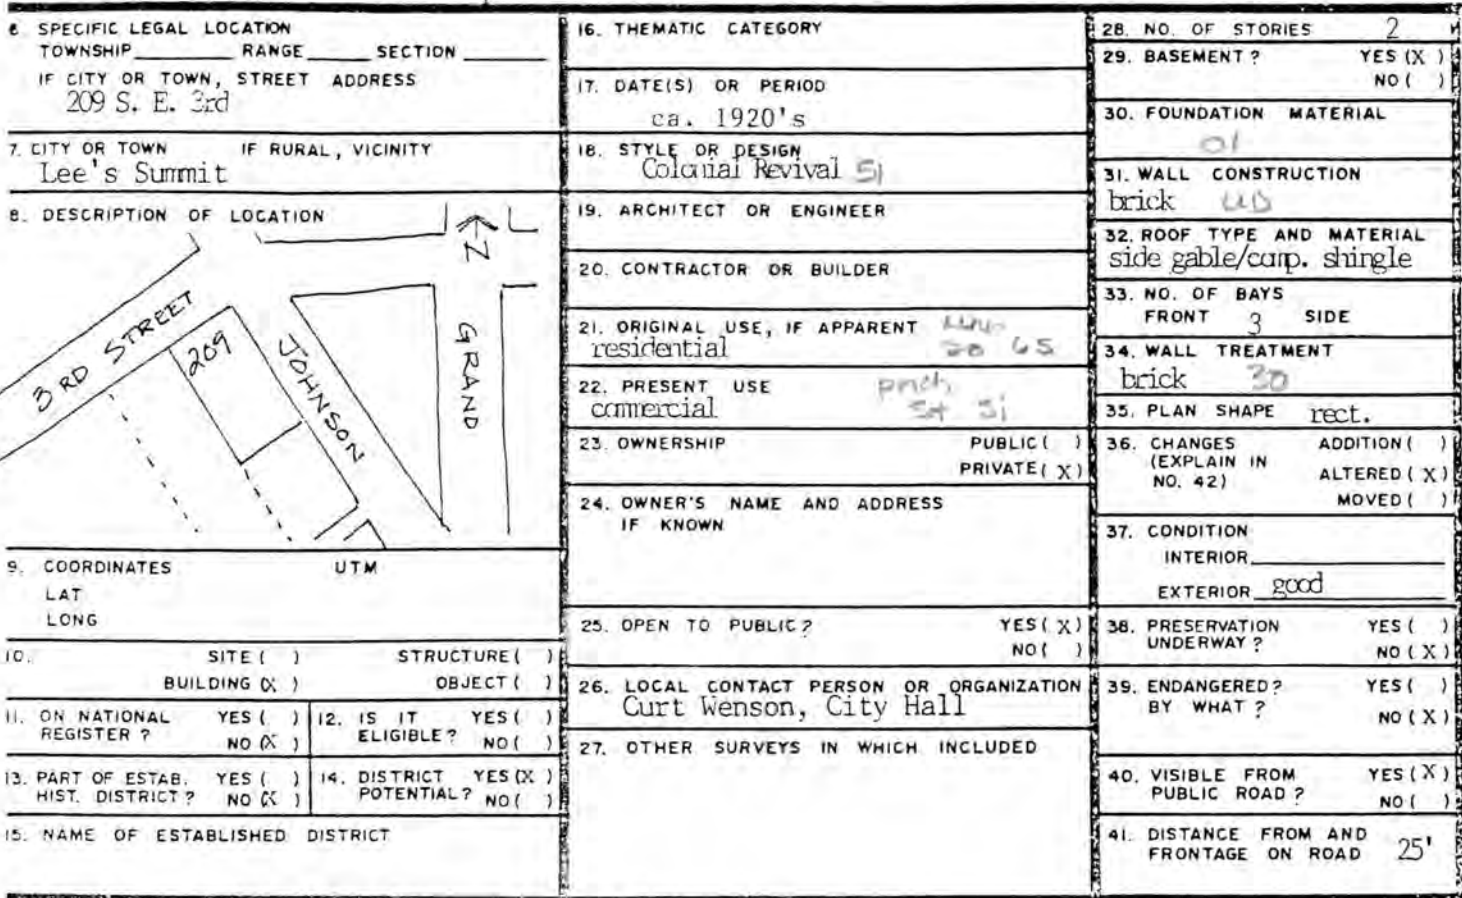 6. SPECIFIC LEGAL LOCATION
TOWNSHIP RANGE SECTION
IF CITY OR TOWN, STREET ADDRESS
209 S. E. 3rd
7. CITY OR TOWN IF RURAL, VICINITY
Lee's Summit
8. DESCRIPTION OF LOCATION
N
3RD STREET
209
JOHNSON
GRAND
9. COORDINATES UTM
LAT
LONG
10. SITE ( ) STRUCTURE ( )
BUILDING (X) OBJECT ( )
11. ON NATIONAL REGISTER ? YES ( ) NO (X)
12. IS IT ELIGIBLE? YES ( ) NO ( )
13. PART OF ESTAB. HIST. DISTRICT ? YES ( ) NO (X)
14. DISTRICT POTENTIAL? YES (X) NO ( )
15. NAME OF ESTABLISHED DISTRICT
16. THEMATIC CATEGORY
17. DATE(S) OR PERIOD
ca. 1920's
18. STYLE OR DESIGN
Colonial Revival 51
19. ARCHITECT OR ENGINEER
20. CONTRACTOR OR BUILDER
21. ORIGINAL USE, IF APPARENT
residential
22. PRESENT USE porch
commercial
23. OWNERSHIP PUBLIC ( )
PRIVATE ( X )
24. OWNER'S NAME AND ADDRESS
IF KNOWN
25. OPEN TO PUBLIC? YES ( X )
NO ( )
26. LOCAL CONTACT PERSON OR ORGANIZATION
Curt Wenson, City Hall
27. OTHER SURVEYS IN WHICH INCLUDED
28. NO. OF STORIES 2
29. BASEMENT ? YES (X )
NO ( )
30. FOUNDATION MATERIAL
01
31. WALL CONSTRUCTION
brick
32. ROOF TYPE AND MATERIAL
side gable/comp. shingle
33. NO. OF BAYS
FRONT 3 SIDE
34. WALL TREATMENT
brick 30
35. PLAN SHAPE rect.
36. CHANGES ADDITION ( )
(EXPLAIN IN NO. 42) ALTERED ( X )
MOVED ( )
37. CONDITION
INTERIOR
EXTERIOR good
38. PRESERVATION UNDERWAY ? YES ( )
NO ( X )
39. ENDANGERED ? YES ( )
BY WHAT ? NO ( X )
40. VISIBLE FROM PUBLIC ROAD ? YES ( X )
NO ( )
41. DISTANCE FROM AND
FRONTAGE ON ROAD 25'